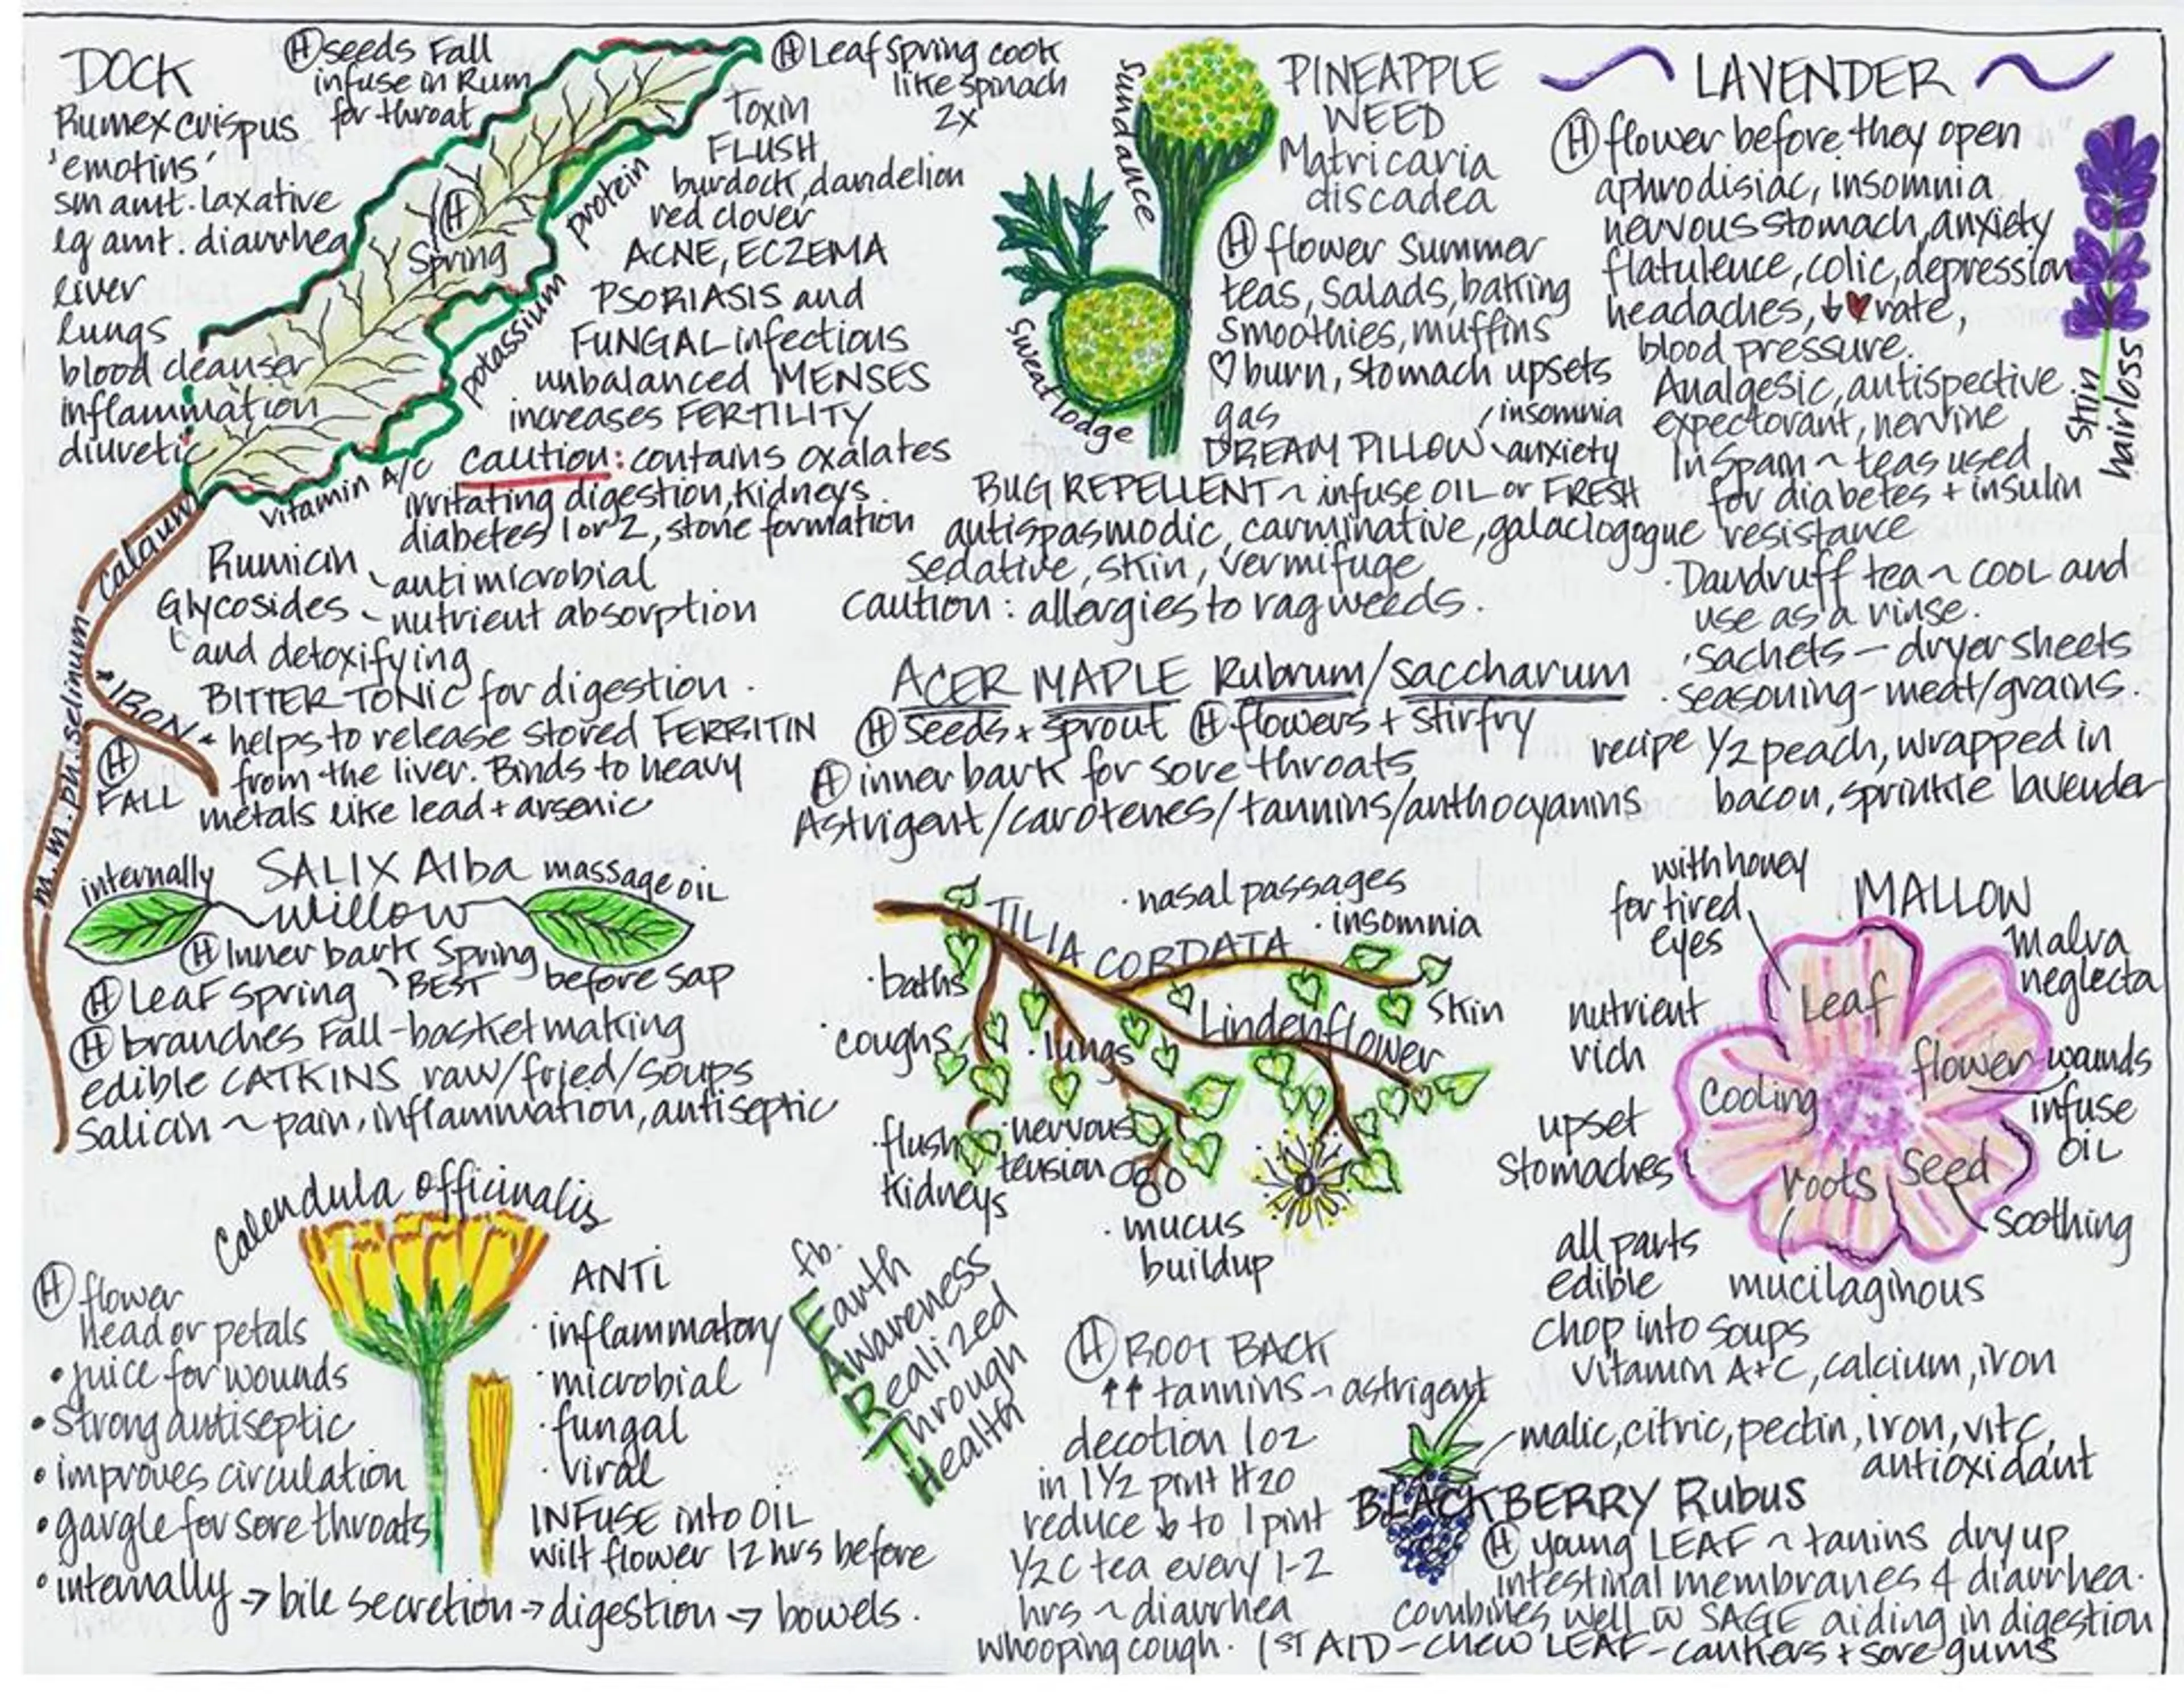 DOCK
Rumex crispus
'emotins'
sm amt. laxative
lg amt. diarrhea
liver
lungs
blood cleanser
inflammation
diuretic
Ⓗ seeds Fall
infuse in Rum
for throat
Ⓗ Leaf spring cook
like spinach
2x
Ⓗ
Spring
protein
potassium
vitamin A/C
calcium
m.m.ph.selinum
*IRON
Ⓗ
FALL
Toxin
FLUSH
burdock, dandelion
red clover
ACNE, ECZEMA
PSORIASIS and
FUNGAL infections
unbalanced MENSES
increases FERTILITY
Caution: contains oxalates
irritating digestion, kidneys.
diabetes 1 or 2, stone formation
Rumicin
antimicrobial
Glycosides ~ nutrient absorption
and detoxifying
BITTER TONIC for digestion.
* helps to release stored FERRITIN
from the liver. Binds to heavy
metals like lead + arsenic
Sundance
Sweatlodge
PINEAPPLE
WEED
Matricaria
discadea
Ⓗ flower summer
teas, salads, baking
smoothies, muffins
♡ burn, stomach upsets
gas
DREAM PILLOW
insomnia
anxiety
BUG REPELLENT ~ infuse OIL or FRESH
antispasmodic, carminative, galaciogogue
sedative, skin, vermifuge
caution: allergies to ragweeds.
LAVENDER
Ⓗ flower before they open
aphrodisiac, insomnia
nervous stomach, anxiety
flatulence, colic, depression
headaches, ↓ ♥ rate,
blood pressure.
Analgesic, autispective
expectorant, nervine
In Spain ~ teas used
for diabetes + insulin
resistance
Skin
hairloss
· Dandruff tea ~ cool and
use as a rinse.
· sachets - dryer sheets
· seasoning - meat/grains.
recipe 1/2 peach, wrapped in
bacon, sprinkle lavender
ACER MAPLE Rubrum/saccharum
Ⓗ seeds + sprout Ⓗ flowers + stirfry
Ⓗ inner bark for sore throats
Astrigent/carotenes/tannins/anthocyanins
internally
SALIX Alba
massage oil
willow
Ⓗ Inner bark Spring
BEST
before sap
Ⓗ Leaf spring
Ⓗ branches Fall - basket making
edible CATKINS raw/fried/soups
salicin ~ pain, inflammation, antiseptic
TILIA CORDATA
Lindenflower
· nasal passages
· insomnia
· baths
· coughs
· lungs
skin
· flush
kidneys
· nervous
tension
· mucus
buildup
MALLOW
Malva
neglecta
with honey
for tired
eyes
Leaf
flower - wounds
infuse
oil
Cooling
roots
Seed
soothing
mucilaginous
nutrient
rich
upset
stomaches
all parts
edible
chop into soups
vitamin A+C, calcium, iron
Calendula officinalis
Ⓗ flower
head or petals
• juice for wounds
• Strong antiseptic
• improves circulation
• gargle for sore throats
• internally → bile secretion → digestion → bowels.
ANTI
· inflammatory
· microbial
· fungal
· viral
INFUSE into OIL
wilt flower 12 hrs before
fb.
Earth
Awareness
Realized
Through
Health
Ⓗ ROOT BACK
↑↑ tannins ~ astrigent
decotion 1oz
in 1 1/2 pint H20
reduce ↓ to 1 pint
1/2 c tea every 1-2
hrs ~ diarrhea
whooping cough.
malic, citric, pectin, iron, vit c,
antioxidant
BLACKBERRY Rubus
Ⓗ young LEAF ~ tanins dry up
intestinal membranes & diarrhea.
combines well w SAGE aiding in digestion
1ST AID - chew LEAF - cankers + sore gums